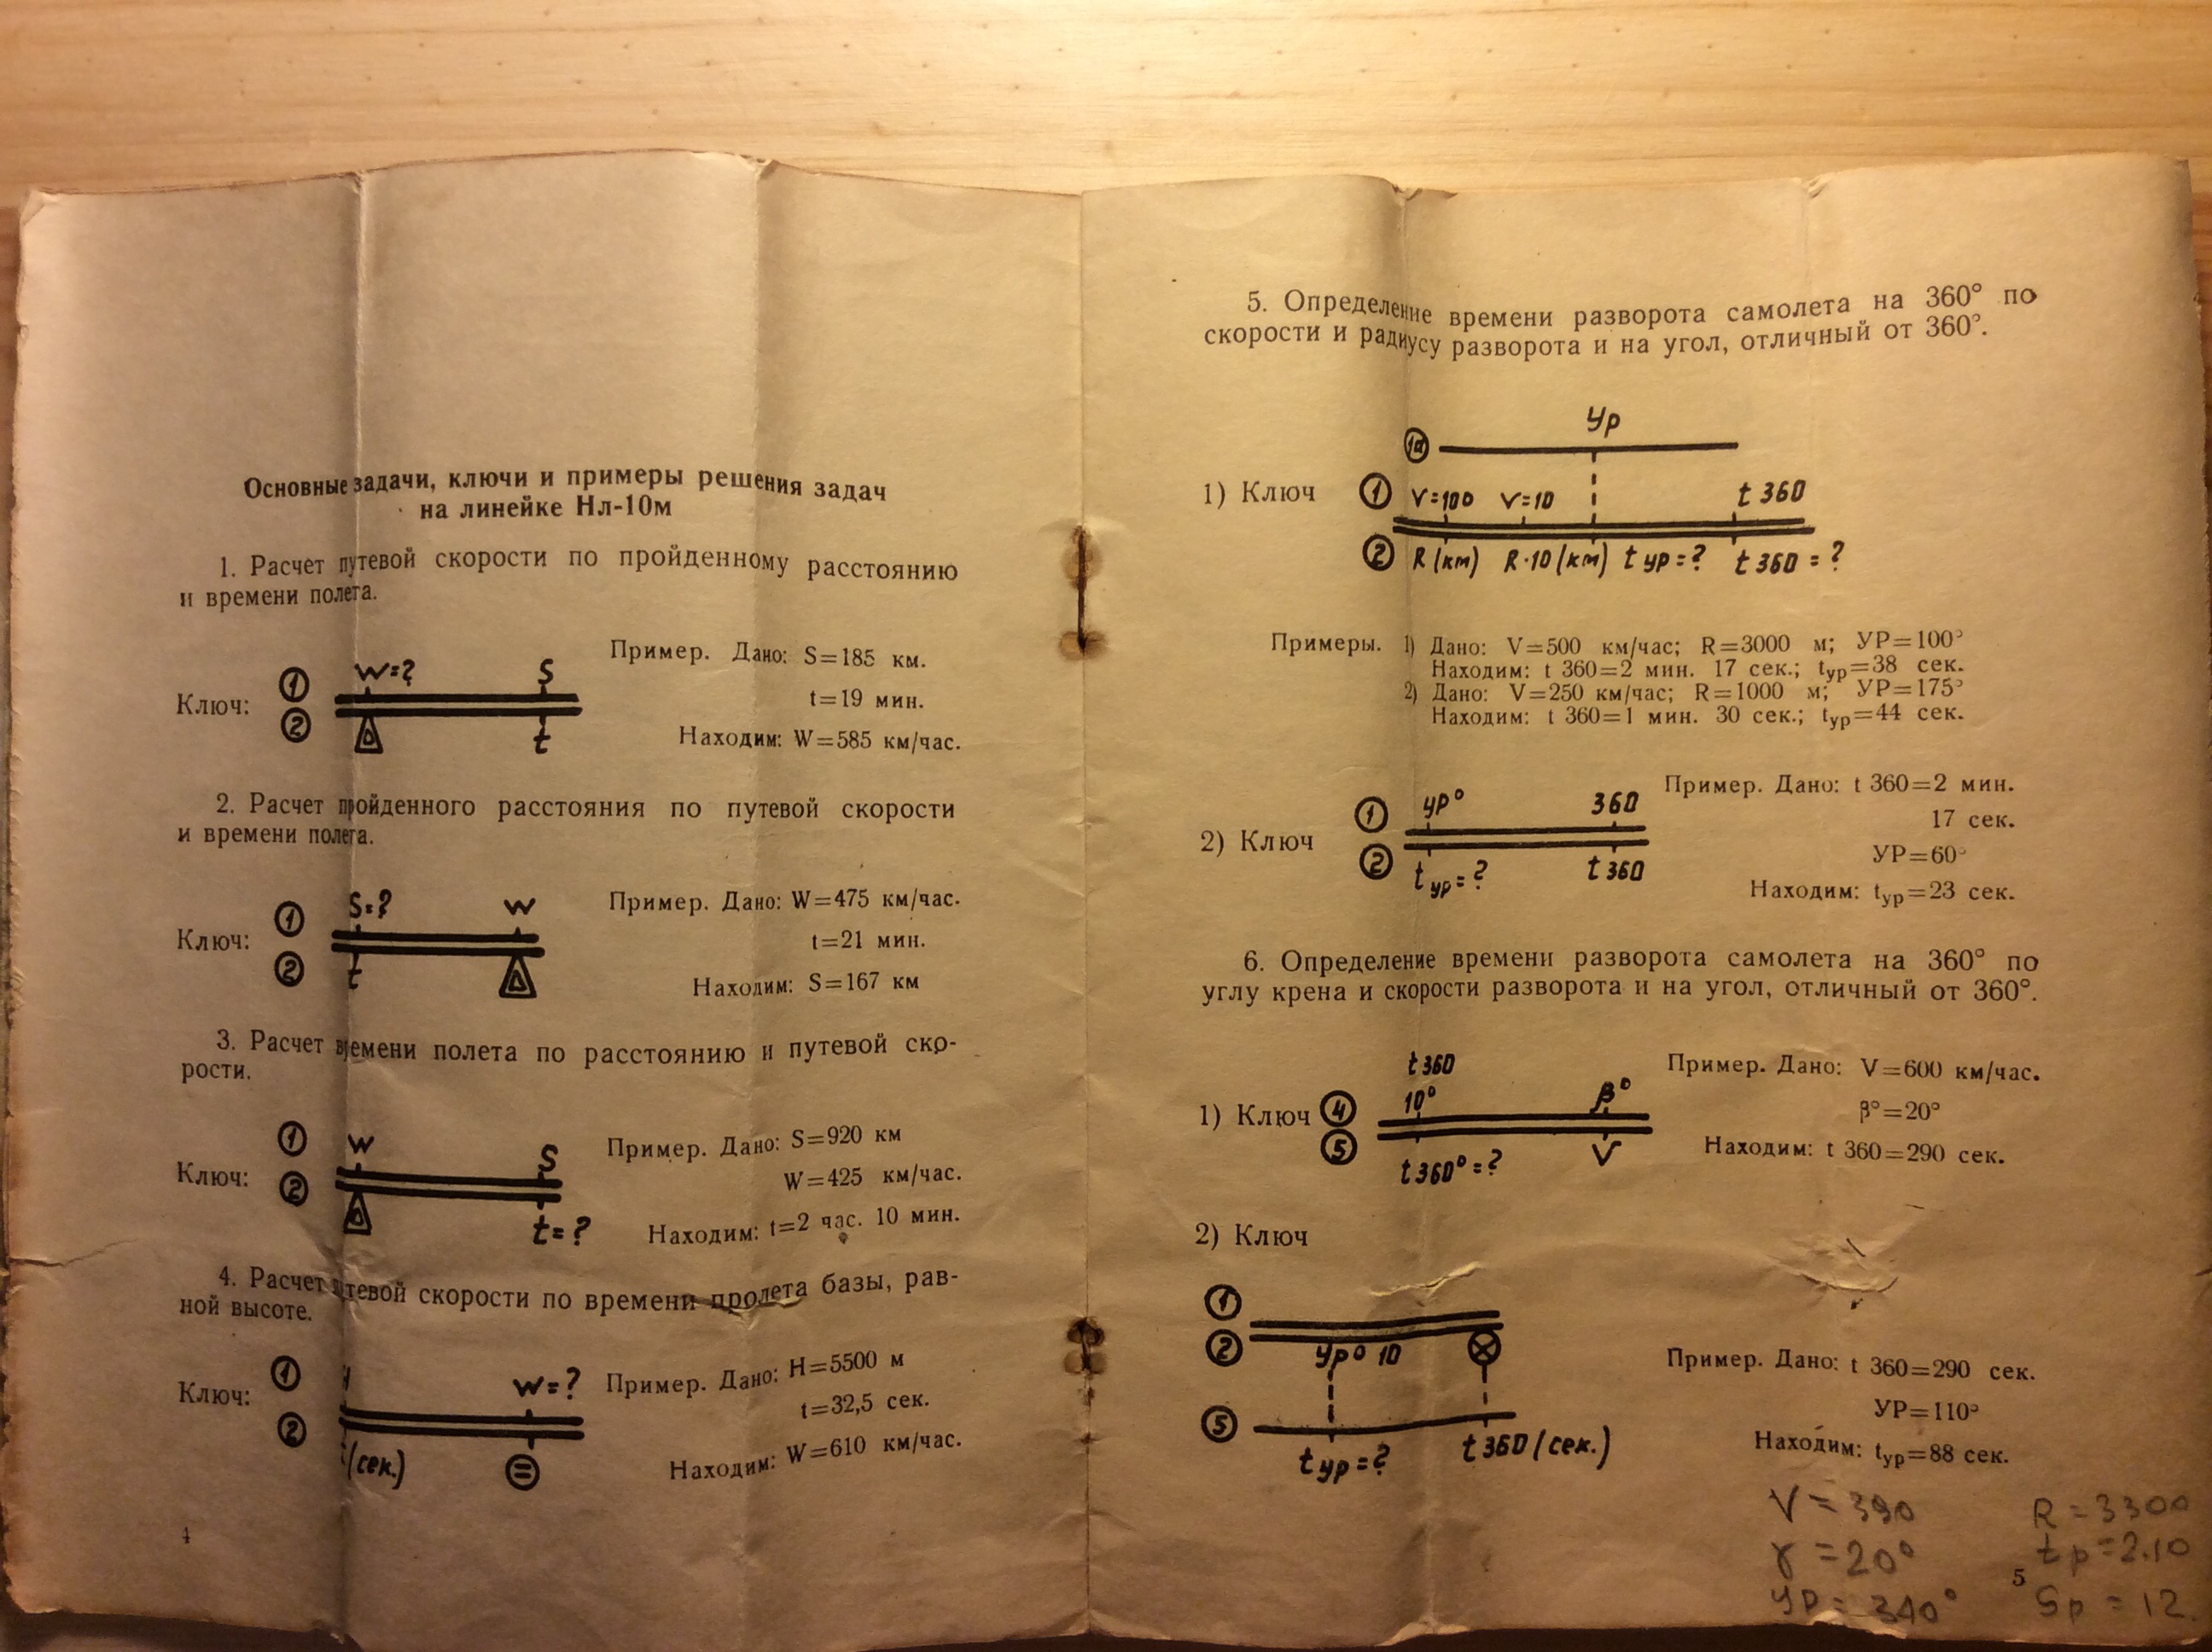 Основные задачи, ключи и примеры решения задач
на линейке Нл-10м
1. Расчет путевой скорости по пройденному расстоянию
и времени полета.
Ключ:
1
W=?
S
2
t
Пример. Дано: S=185 км.
t=19 мин.
Находим: W=585 км/час.
2. Расчет пройденного расстояния по путевой скорости
и времени полета.
Ключ:
1
S=?
W
2
t
Пример. Дано: W=475 км/час.
t=21 мин.
Находим: S=167 км
3. Расчет времени полета по расстоянию и путевой ско-
рости.
Ключ:
1
W
S
2
t=?
Пример. Дано: S=920 км
W=425 км/час.
Находим: t=2 час. 10 мин.
4. Расчет путевой скорости по времени пролета базы, рав-
ной высоте.
Ключ:
1
W=?
2
(сек.)
=
Пример. Дано: H=5500 м
t=32,5 сек.
Находим: W=610 км/час.
4
5. Определение времени разворота самолета на 360° по
скорости и радиусу разворота и на угол, отличный от 360°.
Ур
1а
1) Ключ
1 V=100 V=10 t 360
2 R(км) R·10(км) t ур=? t 360=?
Примеры. 1) Дано: V=500 км/час; R=3000 м; УР=100°
Находим: t 360=2 мин. 17 сек.; tур=38 сек.
2) Дано: V=250 км/час; R=1000 м; УР=175°
Находим: t 360=1 мин. 30 сек.; tур=44 сек.
2) Ключ
1 ур° 360
2 t ур=? t 360
Пример. Дано: t 360=2 мин.
17 сек.
УР=60°
Находим: tур=23 сек.
6. Определение времени разворота самолета на 360° по
углу крена и скорости разворота и на угол, отличный от 360°.
1) Ключ
t 360
4 10° β°
5 t 360°=? V
Пример. Дано: V=600 км/час.
β°=20°
Находим: t 360=290 сек.
2) Ключ
1
2 Ур° 10
5
t ур=? t 360 (сек.)
Пример. Дано: t 360=290 сек.
УР=110°
Находим: tур=88 сек.
V = 390 R = 3300
γ = 20° t р = 2.10
5
УР = 340° Sр = 12